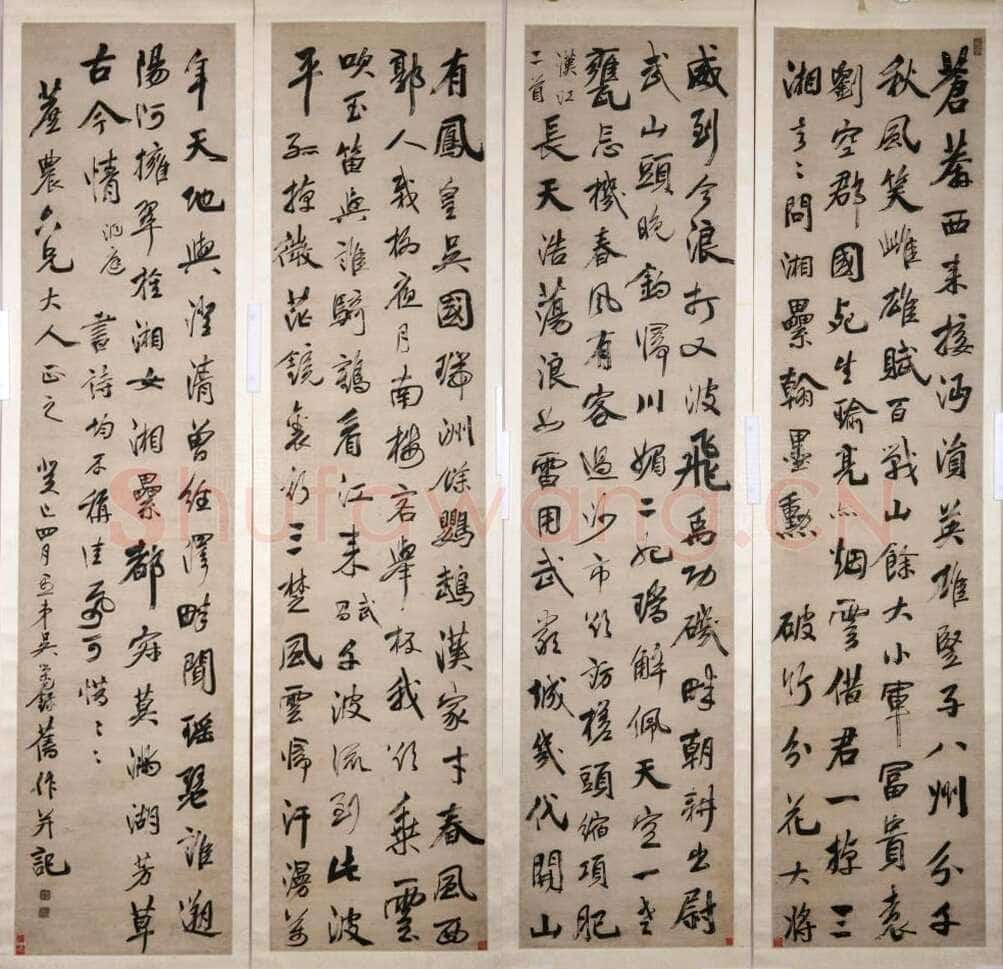 蒼莽西来接沔湞英雄豎子八州分千
秋風笑雌雄賦百戰山餘大小軍富貴袁
劉空郡國死生瑜亮亦烟雲借君一掉三
湘 問湘纍翰墨勲 破竹分花大將
威到今浪打又波飛禹功磯畔朝耕出尉
武山頭晚釣歸川媚二妃 解佩天空一老
甕忘機春風有客過沙市欲訪槎頭縮項肥
漢江二首
長天浩蕩浪如雷用武嚴城幾代開山
有鳳皇吳國瑞洲餘鸚鵡漢家才春風西
郭人栽柳夜月南樓客舉杯我欲乗雲
吹玉笛與誰騎鶴看江来 武昌 千波流到此波
平 掠微茫鏡裏行三楚風雲歸汗漫萬
年天地與澄清曾經澤畔聞瑶瑟誰遡
陽阿擁翠旌湘女湘纍都寂莫滿湖芳草
古今情 洞庭 書詩均不稱佳 可惜ミミ
農六兄大人正之 癸巳四月愚弟吳 舊作并記
Shufawang.CN